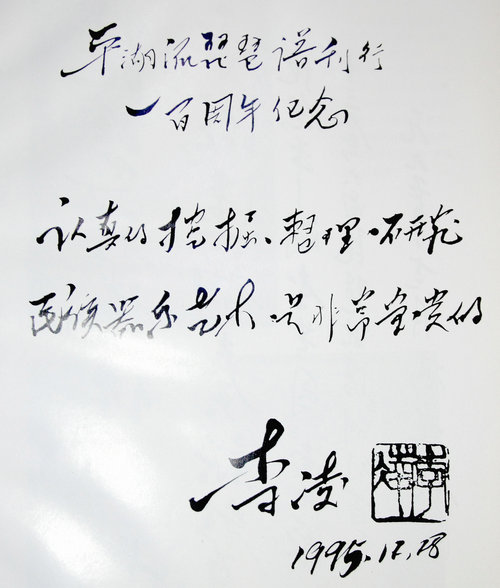 平湖派琵琶谱刊行
一百周年纪念
认真的挖掘、整理、研究
民族器乐艺术是非常宝贵的
李凌
1995.12.28